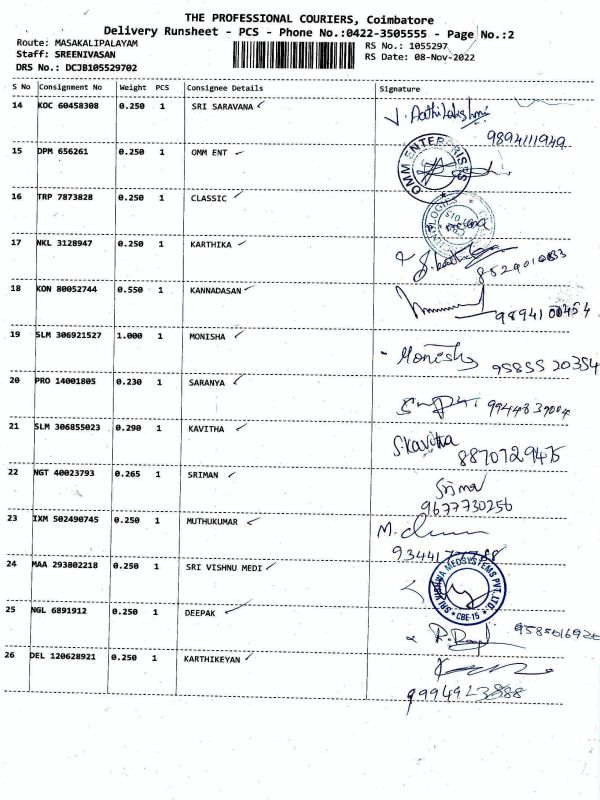 THE PROFESSIONAL COURIERS, Coimbatore
Delivery Runsheet - PCS - Phone No.:0422-3505555 - Page No.:2
Route: MASAKALIPALAYAM
Staff: SREENIVASAN
DRS No.: DCJB105529702
RS No.: 1055297
RS Date: 08-Nov-2022
S No Consignment No Weight PCS Consignee Details Signature
14 KOC 60458308 0.250 1 SRI SARAVANA
9894111949
15 DPM 656261 0.250 1 OMM ENT
OMM ENTERPRISES
16 TRP 7873828 0.250 1 CLASSIC
17 NKL 3128947 0.250 1 KARTHIKA
18 KON 80052744 0.550 1 KANNADASAN
19 SLM 306921527 1.000 1 MONISHA
Monisha 95855 20354
20 PRO 14001805 0.230 1 SARANYA
21 SLM 306855023 0.290 1 KAVITHA
S.Kavitha
8870729475
22 NGT 40023793 0.265 1 SRIMAN
9677730256
23 IXM 502490745 0.250 1 MUTHUKUMAR
M.
24 MAA 293802218 0.250 1 SRI VISHNU MEDI
CBE-15
25 NGL 6891912 0.250 1 DEEPAK
9585016920
26 DEL 120628921 0.250 1 KARTHIKEYAN